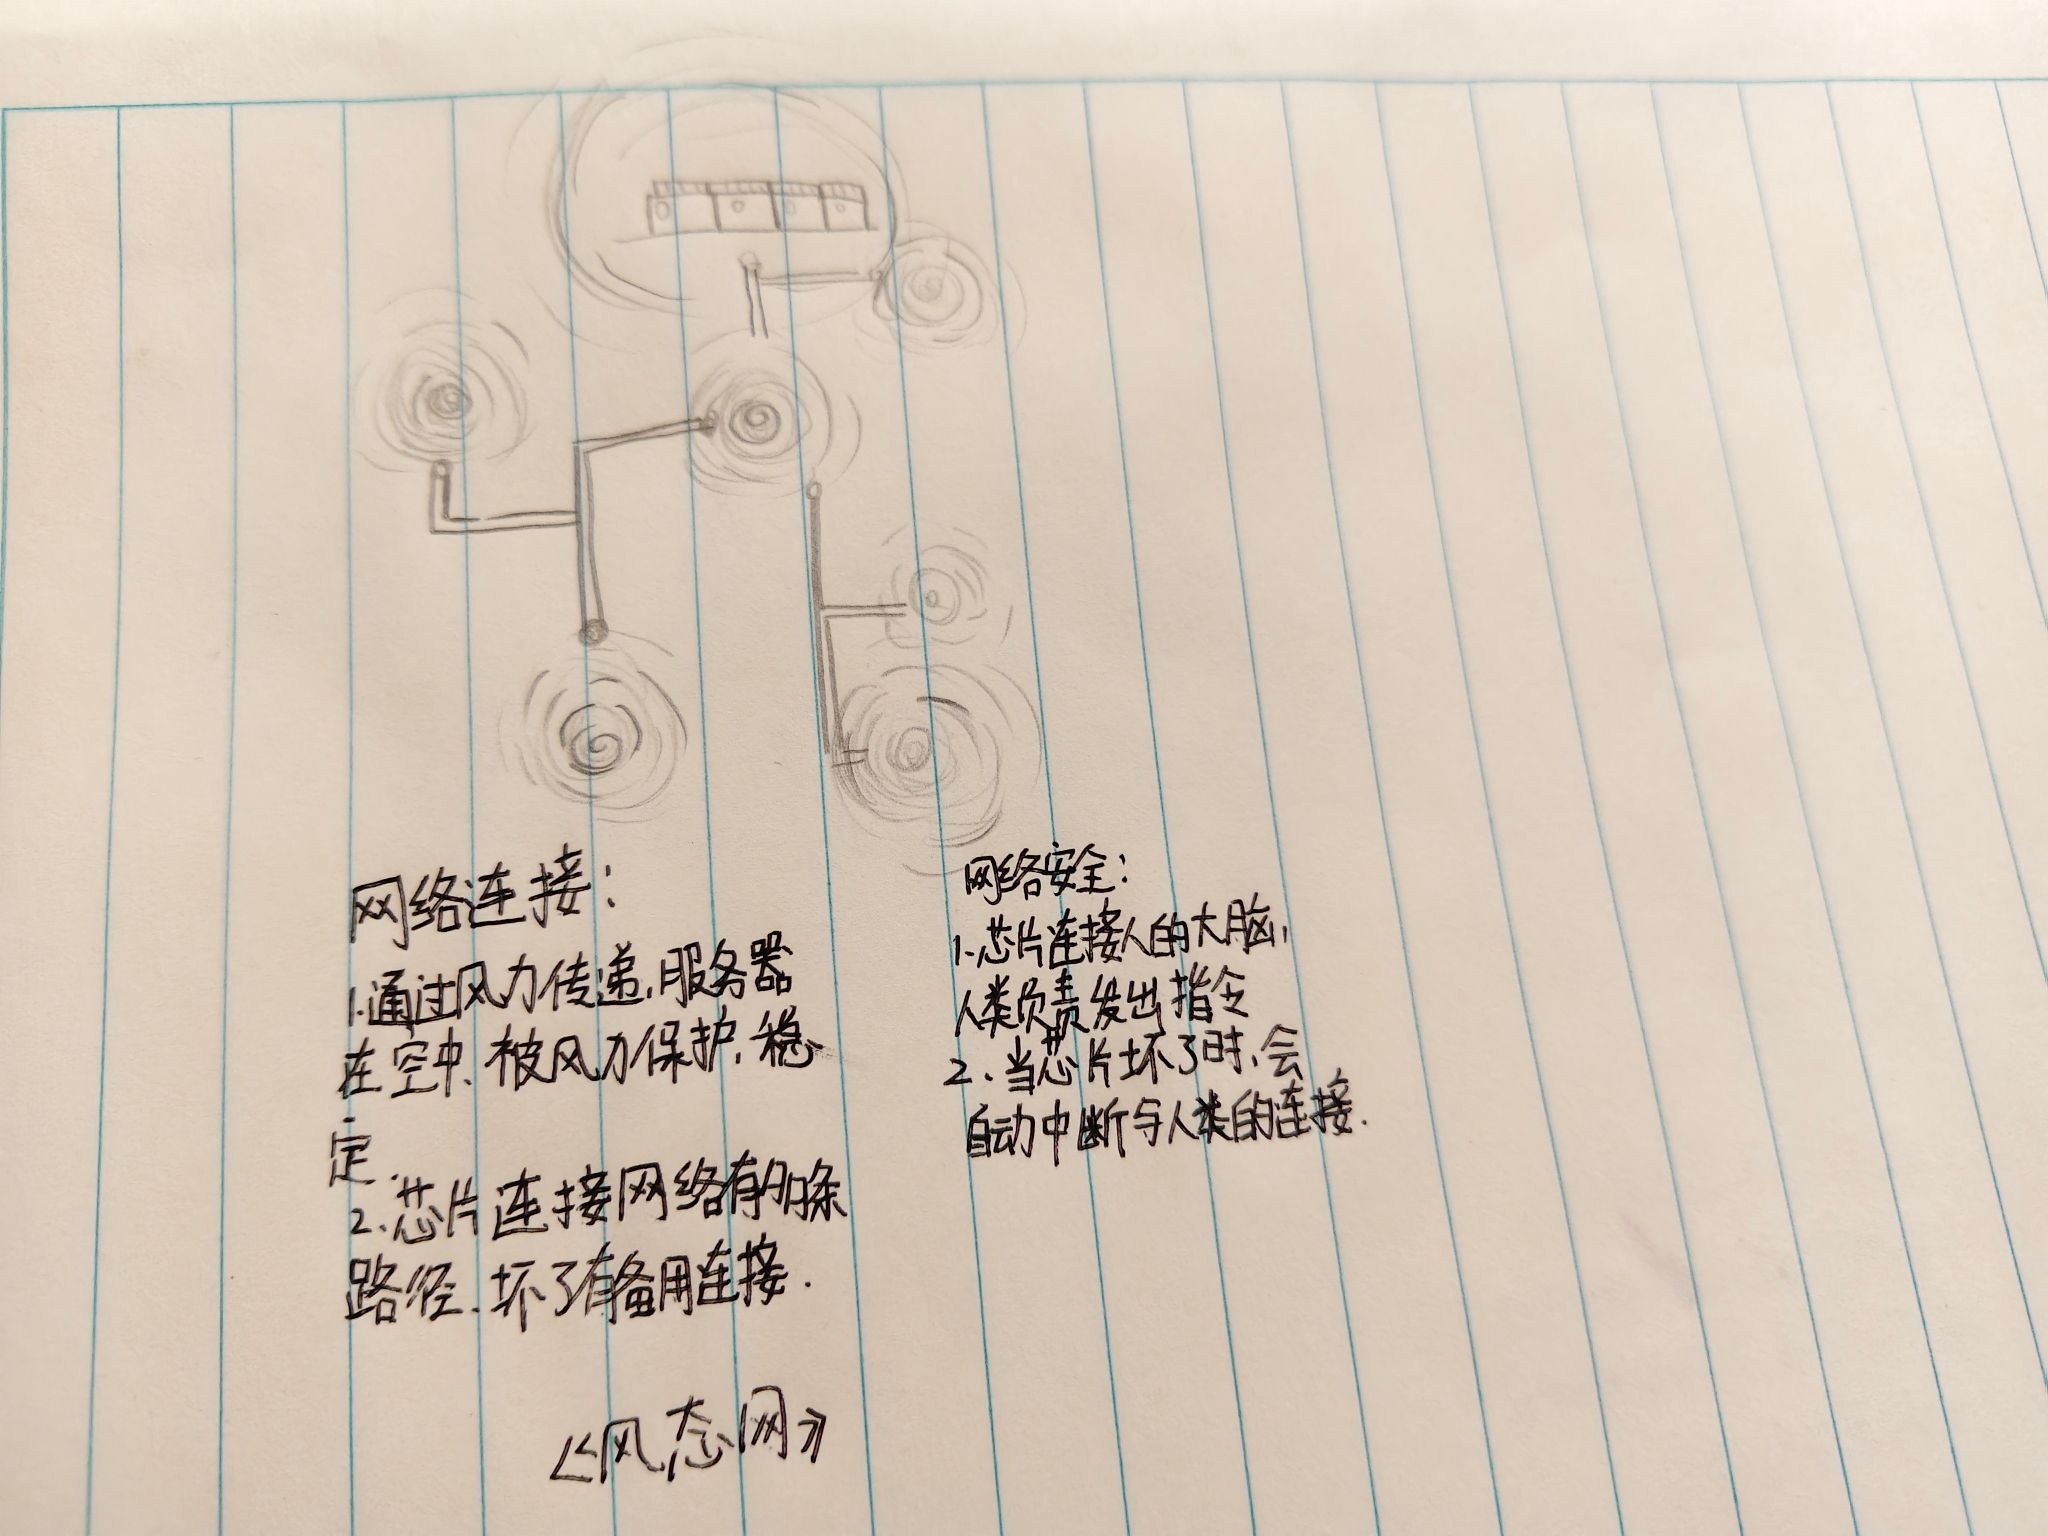 网络连接：
1.通过风力传递，服务器
在空中，被风力保护，稳
定.
2.芯片连接网络有多条
路径，坏了有备用连接.
《风态网》
网络安全：
1.芯片连接人的大脑，
人类负责发出指令
2.当芯片坏了时，会
自动中断与人类的连接.